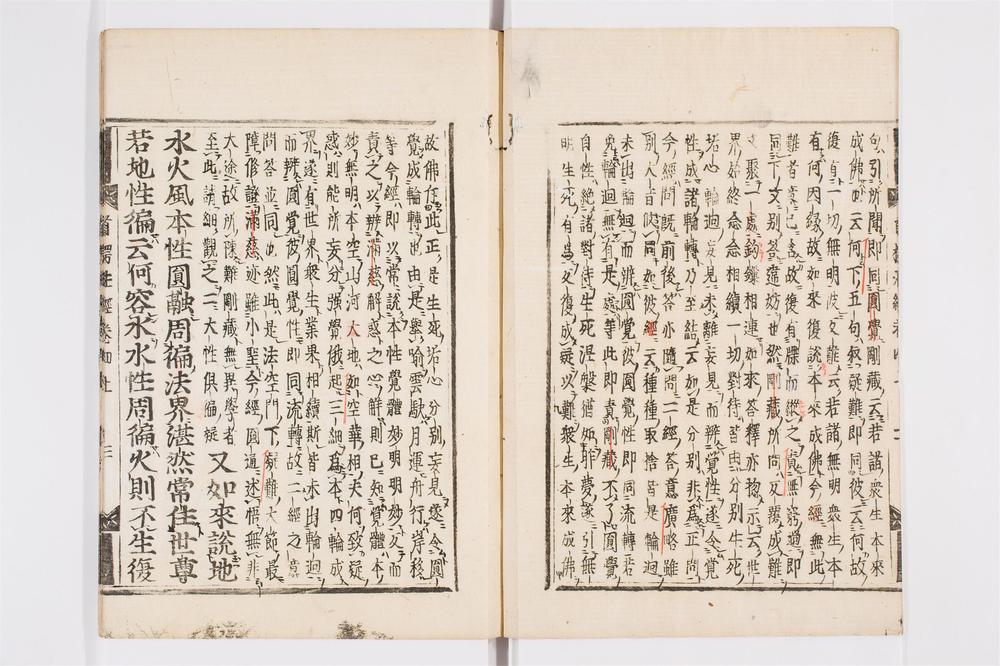 句引所聞即同圓覺剛藏云若諸衆生本來
成佛也云何下五句敘疑難即同彼云何故
復有一切無明彼文難云若諸無明衆生本
有何因縁故如來復説本來成佛今經無此
難者意已含故復有牒而縱之實無窮過即
同下文別答違妨也然剛藏所問反覆成難
文聚一處鉤鏁相連如來答釋亦揔示云世
界始終念念相續一切對待皆由分別生死
垢心輪迴妄見未離妄見而辨覺性遂令覺
性成諸輪轉乃至結云如是分別非爲正問
今經問既前後答亦隨問二經答意廣略雖
別人旨似同如彼經云種種取捨皆是輪迴
未出輪迴而辨圓覺彼圓覺性即同流轉若
免輪迴無有是處等此即責剛藏不了圓覺
自性絶諸對待生死涅槃猶如昨夢遂引無
明生死有爲等文復成疑以難衆生本來成佛
故佛斥此正是生死垢心分別妄見遂令圓
覺成輪轉也由是擧喻雲駛月運舟行岸移
等今經即以常説本性覺體妙明明妙文而
責之以辨滿慈解惑之心解則已知覺體本
妙無明本空山河大地如空華相夫何致疑
惑則能所妄分強覺俄起三細爲本四輪成
界遂有世界衆生業果相續斯皆未出輪迴
而辨圓覺彼圓覺性即同流轉故二經之意
問答並同也然此是法空門下疑難大節最
障修證滿慈迹雖小聖今經圓通述悟無非
大途故所陳難剛藏無異學者
至此請細觀之二大性俱徧疑
又如來說地
水火風本性圓融周徧法界湛然常住世尊
若地性徧云何容水水性周徧火則不生復